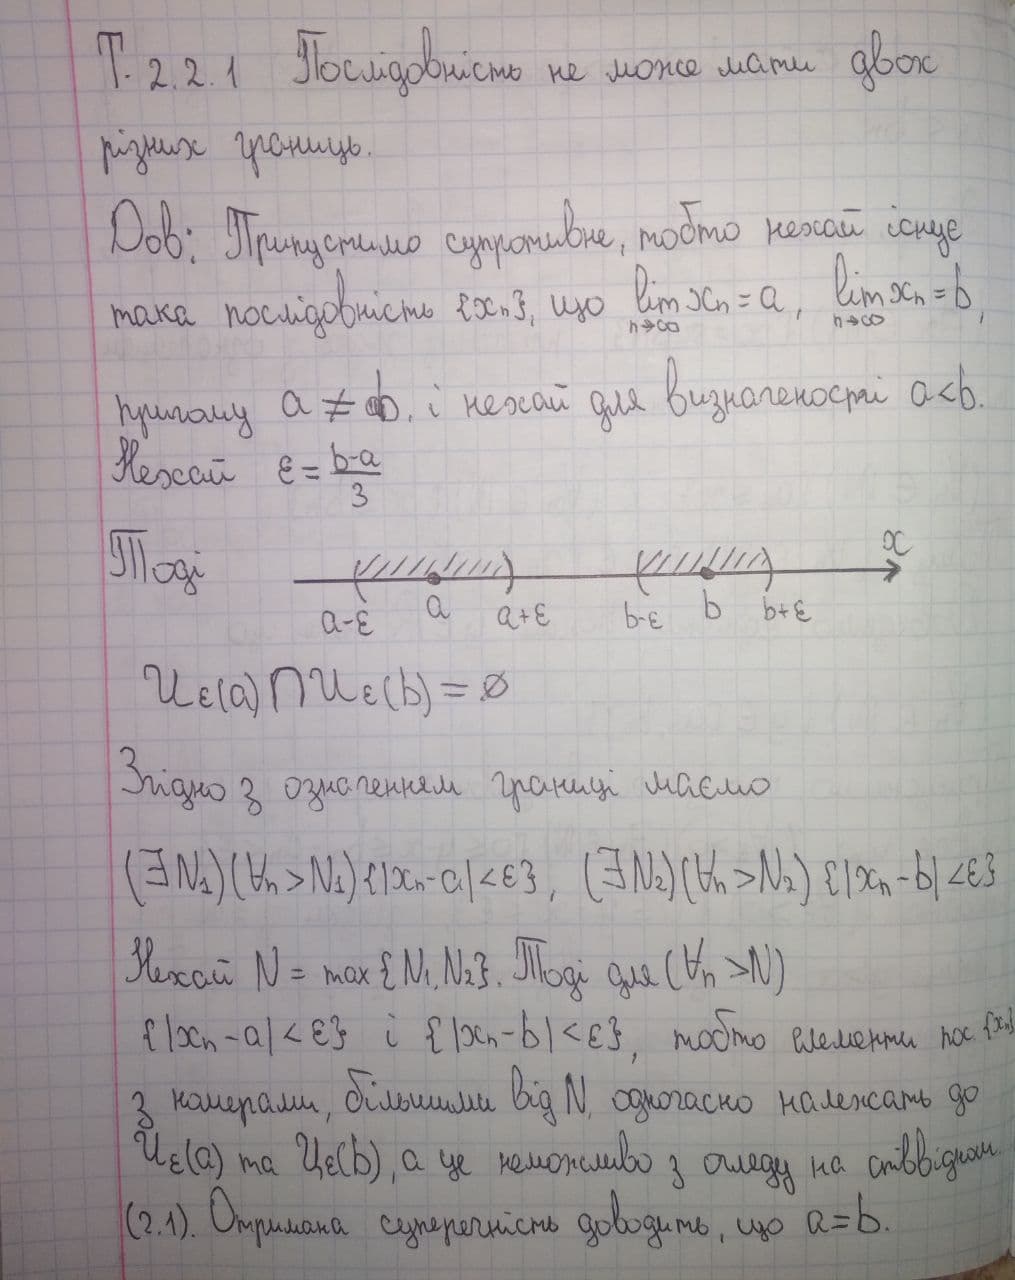 Т. 2.2.1 Послідовність не може мати двох
різних границь.
Дов: Припустимо супротивне, тобто нехай існує
така послідовність {xₙ}, що lim xₙ = a, lim xₙ = b,
n→∞ n→∞
причому a ≠ b, і нехай для визначеності a<b.
Нехай ε = (b-a)/3
Тоді x
a-ε a a+ε b-ε b b+ε
Uε(a)∩Uε(b) = ∅
Згідно з означенням границі маємо
(∃N₁)(∀n>N₁){|xₙ-a|<ε}, (∃N₂)(∀n>N₂){|xₙ-b|<ε}
Нехай N = max{N₁,N₂}. Тоді для (∀n>N)
{|xₙ-a|<ε} і {|xₙ-b|<ε}, тобто елементи пос. {xₙ}
з номерами, більшими від N, одночасно належать до
Uε(a) та Uε(b), а це неможливо з огляду на співвіднош.
(2.1). Отримана суперечність доводить, що a=b.